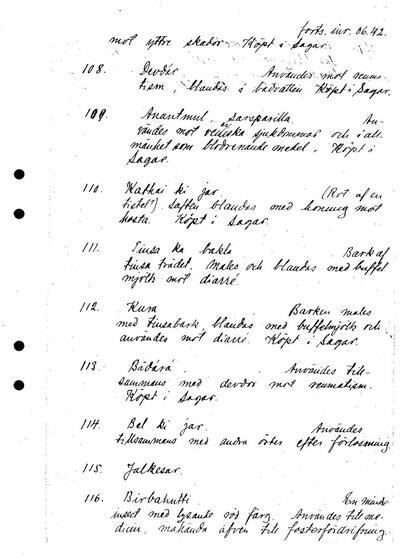 forts. inv. 06.42.
mot yttre skador. Köpt i Sagar.
108. Devdár Användes mot reuma-
tism, blandas i badvatten. Köpt i Sagar.
109. Anantmul, sarsparilla. An-
vändes mot veneriska sjukdommar och i all-
mänhet som blodrenande medel. Köpt i
Sagar.
110. Kathai ki jar (Rot af en
tistel?) saften blandas med honung mot
hosta. Köpt i Sagar.
111. Tinsa ka bakla Bark af
tinsa trädet. Males och blandas med buffel
mjölk mot diarré.
112. Kura Barken males
med tinsabark, blandas med buffelmjölk och
användes mot diarré. Köpt i Sagar.
113. Bádárá. Användes till-
sammans med devdár mot reumatism.
Köpt i Sagar.
114. Bel ki jar Användes
tillsammans med andra örter efter förlossning
115. Jalkesar.
116. Birbahutti En mindre
insect med lysande röd färg. Användes till me-
dicin, äfven till fosterfördrifning.